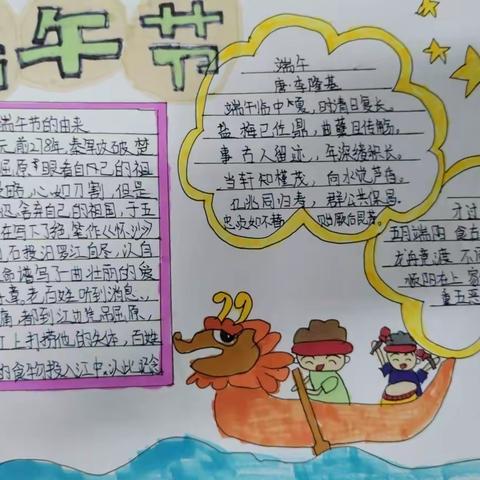 午节
端午节的由来
元前278年,秦军攻破楚
屈原眼看自己的祖
心如刀割,但是
舍弃自己的祖国,于五
在写下了绝笔作《怀沙》
石投汨罗江自尽,以自
命谱写了一曲壮丽的爱
章。老百姓听到消息、
痛,都到江边吊屈原、
江上打捞他的尸体,百姓
的食物投入江中,以此纪念
端午
唐·李隆基
端午临中夏,时清日复长。
盐梅已佐鼎,曲糵且传觞。
事古人留迹,年深缕积长。
当轩知槿茂,向水觉芦香。
亿兆同归寿,群公共保昌。
忠贞如不替,贻厥后昆芳。
才过
五月端阳
龙舟竞渡不
端阳在上
重五